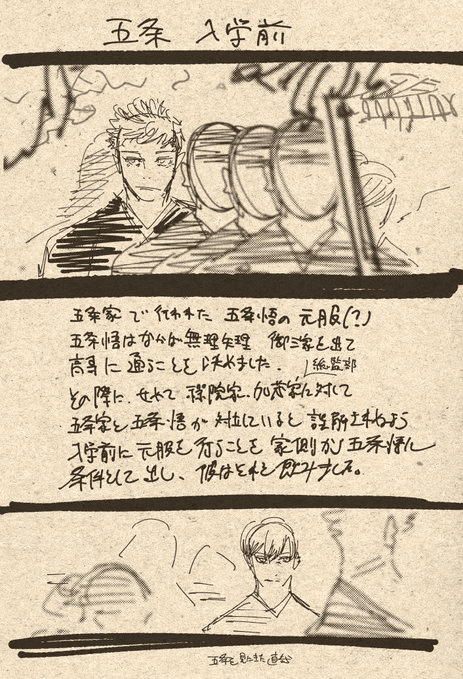 五条 入学前
五条家で行われた 五条悟の元服(?)
五条悟はなかば無理矢理 御三家を出て
高専に通うことを決めました。
総監部
その際に、せめて 禪院家、加茂家に対して
五条家と五条悟が対立していると 誤解されぬよう
入学前に元服を行うことを 家側が五条悟に
条件として出し、彼はそれを飲みました。
五条を見にきた直哉